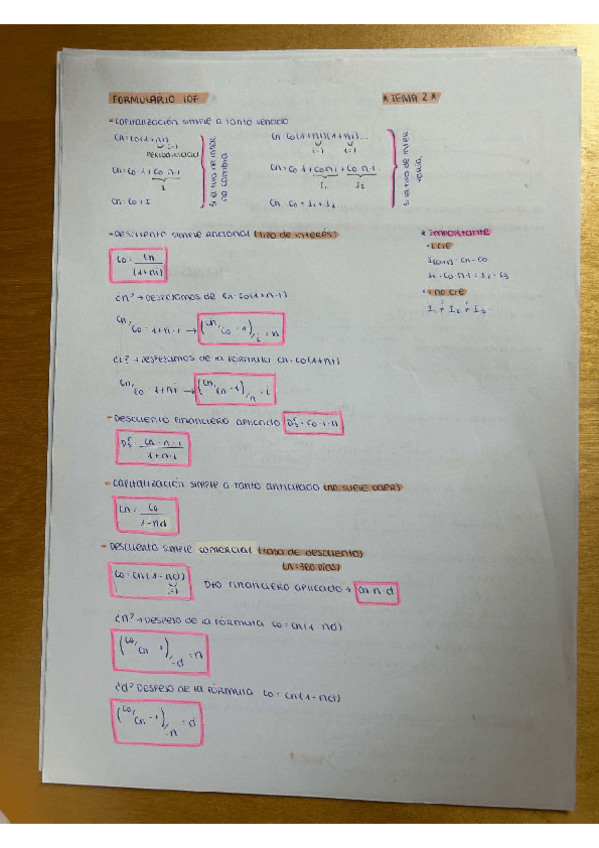 FORMULARIO IOF
* TEMA 2 *
- Capitalización simple a tanto vencido
Cn = Co (1+ni)
i=1
PERIODICIDAD
Cn = Co · 1 + Co · n · i
I
Cn = Co + I
Si el tipo de inter. no cambia
Cn = Co (1+ni)(1+ni)...
i=1 i=1
Cn = Co · 1 + Co · n · i + Co · n · i
I₁ I₂
Cn = Co + I₁ + I₂
Si el tipo de inter. varia.
- Descuento simple racional (tipo de interés)
Co = Cn / (1+ni)
* importante
I (0,n) = Cn - Co
I₁ = Co · n · i = I₂ = I₃
no cte
I₁ ≠ I₂ ≠ I₃
¿n? → Despejamos de Cn = Co (1+n·i)
Cn/Co = 1+n·i → (Cn/Co - 1)/i = n
¿i? → Despejamos de la fórmula Cn = Co (1+ni)
Cn/Co = 1+ni → (Cn/Cn - 1)/n = i
- Descuento financiero aplicado
Cn · n · i / 1+n·i
- Capitalización simple a tanto anticipado (no suele caer)
Cn = Co / 1-nd
- Descuento simple comercial (tasa de descuento)
(n=360 días)
Co = Cn (1-nd)
Dto financiero aplicado → Cn · n · d
¿n? → Despejo de la fórmula Co = Cn (1-nd)
(Co/Cn - 1)/-d = n
¿d? Despejo de la fórmula Co = Cn (1-nd)
(Co/Cn - 1)/-n = d